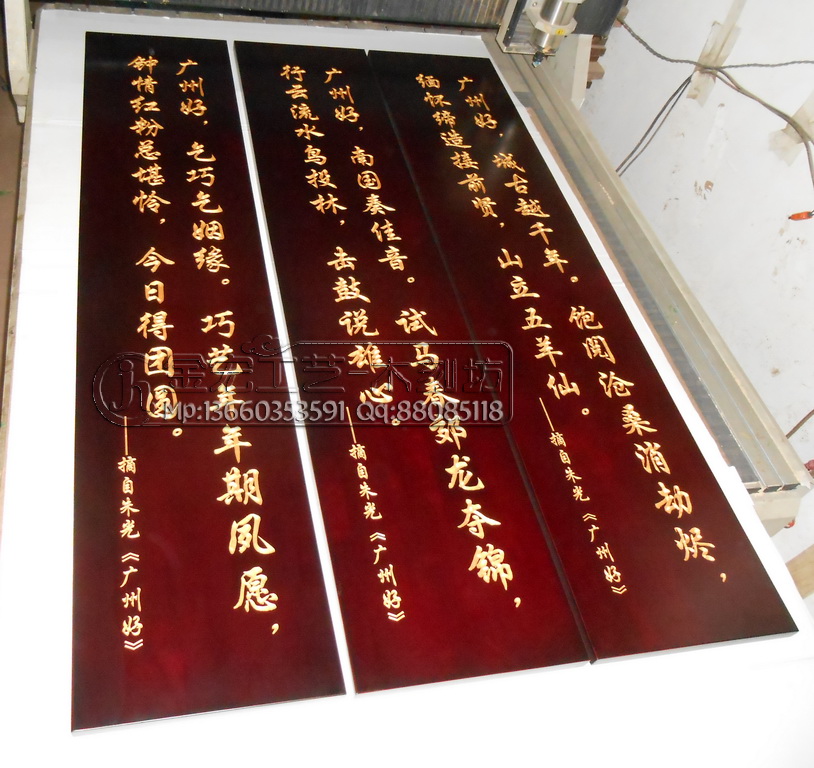 广州好，城古越千年。饱阅沧桑消劫烬，
缅怀缔造接前贤，山立五羊仙。
——摘自朱光《广州好》
广州好，南国奏佳音。试马春郊龙夺锦，
行云流水鸟投林，击鼓说雄心。
——摘自朱光《广州好》
广州好，乞巧乞姻缘。巧艺年年期夙愿，
钟情红粉总堪怜，今日得团圆。
——摘自朱光《广州好》
工艺—木刻坊
Mp:13660353591 Qq:88085118